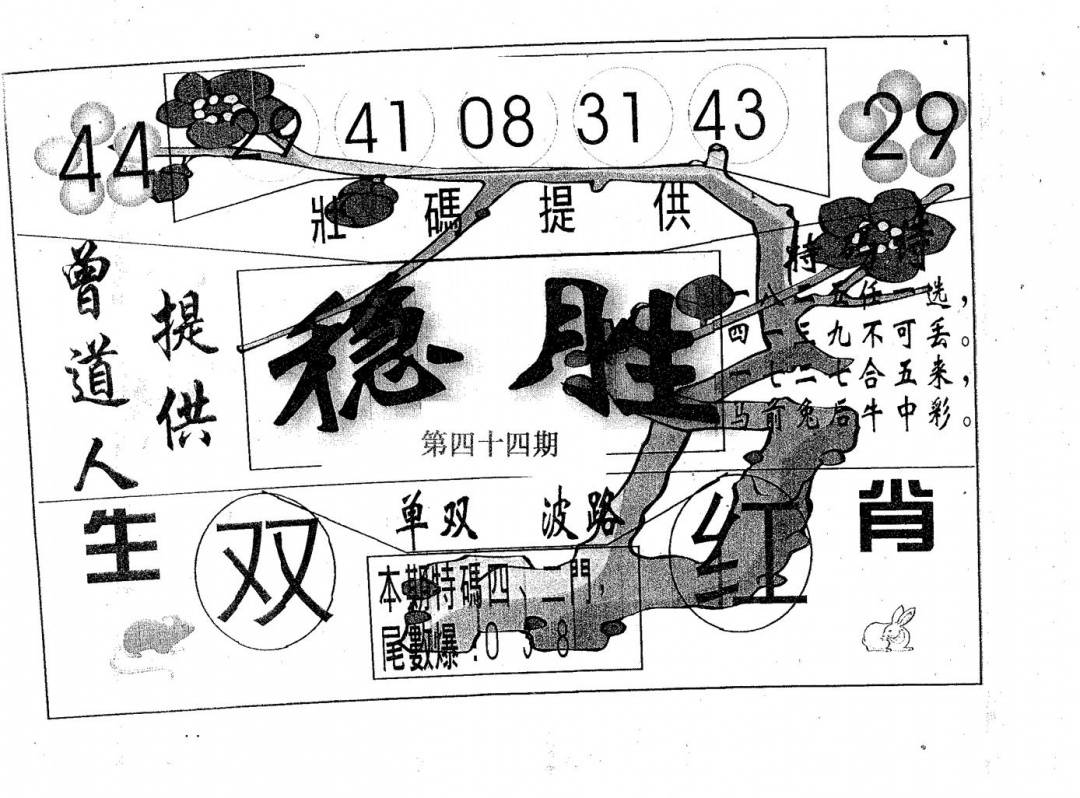 44 29 41 08 31 43 29
壯碼提供
曾道人
提供
稳胜
第四十四期
特码诗
一八二五任一选，
四一三九不可丢。
一七二七合五来，
马前兔后牛中彩。
单双 波路
生
双
红
肖
本期特碼四、二門，
尾數爆:0 3 8